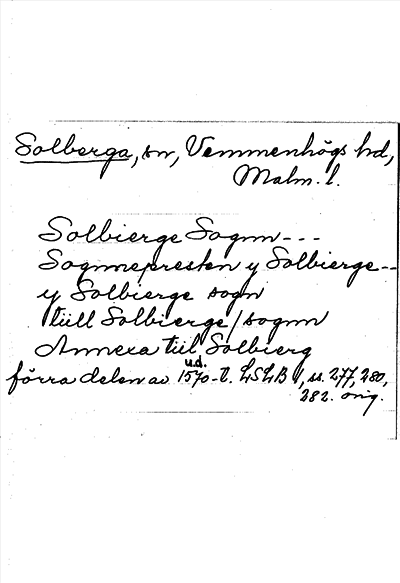 Solberga, sn, Vemmenhögs hd,
Malm. l.
Solbierge Sognn---
Sognnepresten y Solbierge--
y Solbierge sogn
tiill Solbierge/sognn
Annexa tiil Solbierg
u.d.
förra delen av 1570-t. LSLB, ss. 277, 280,
282. orig.